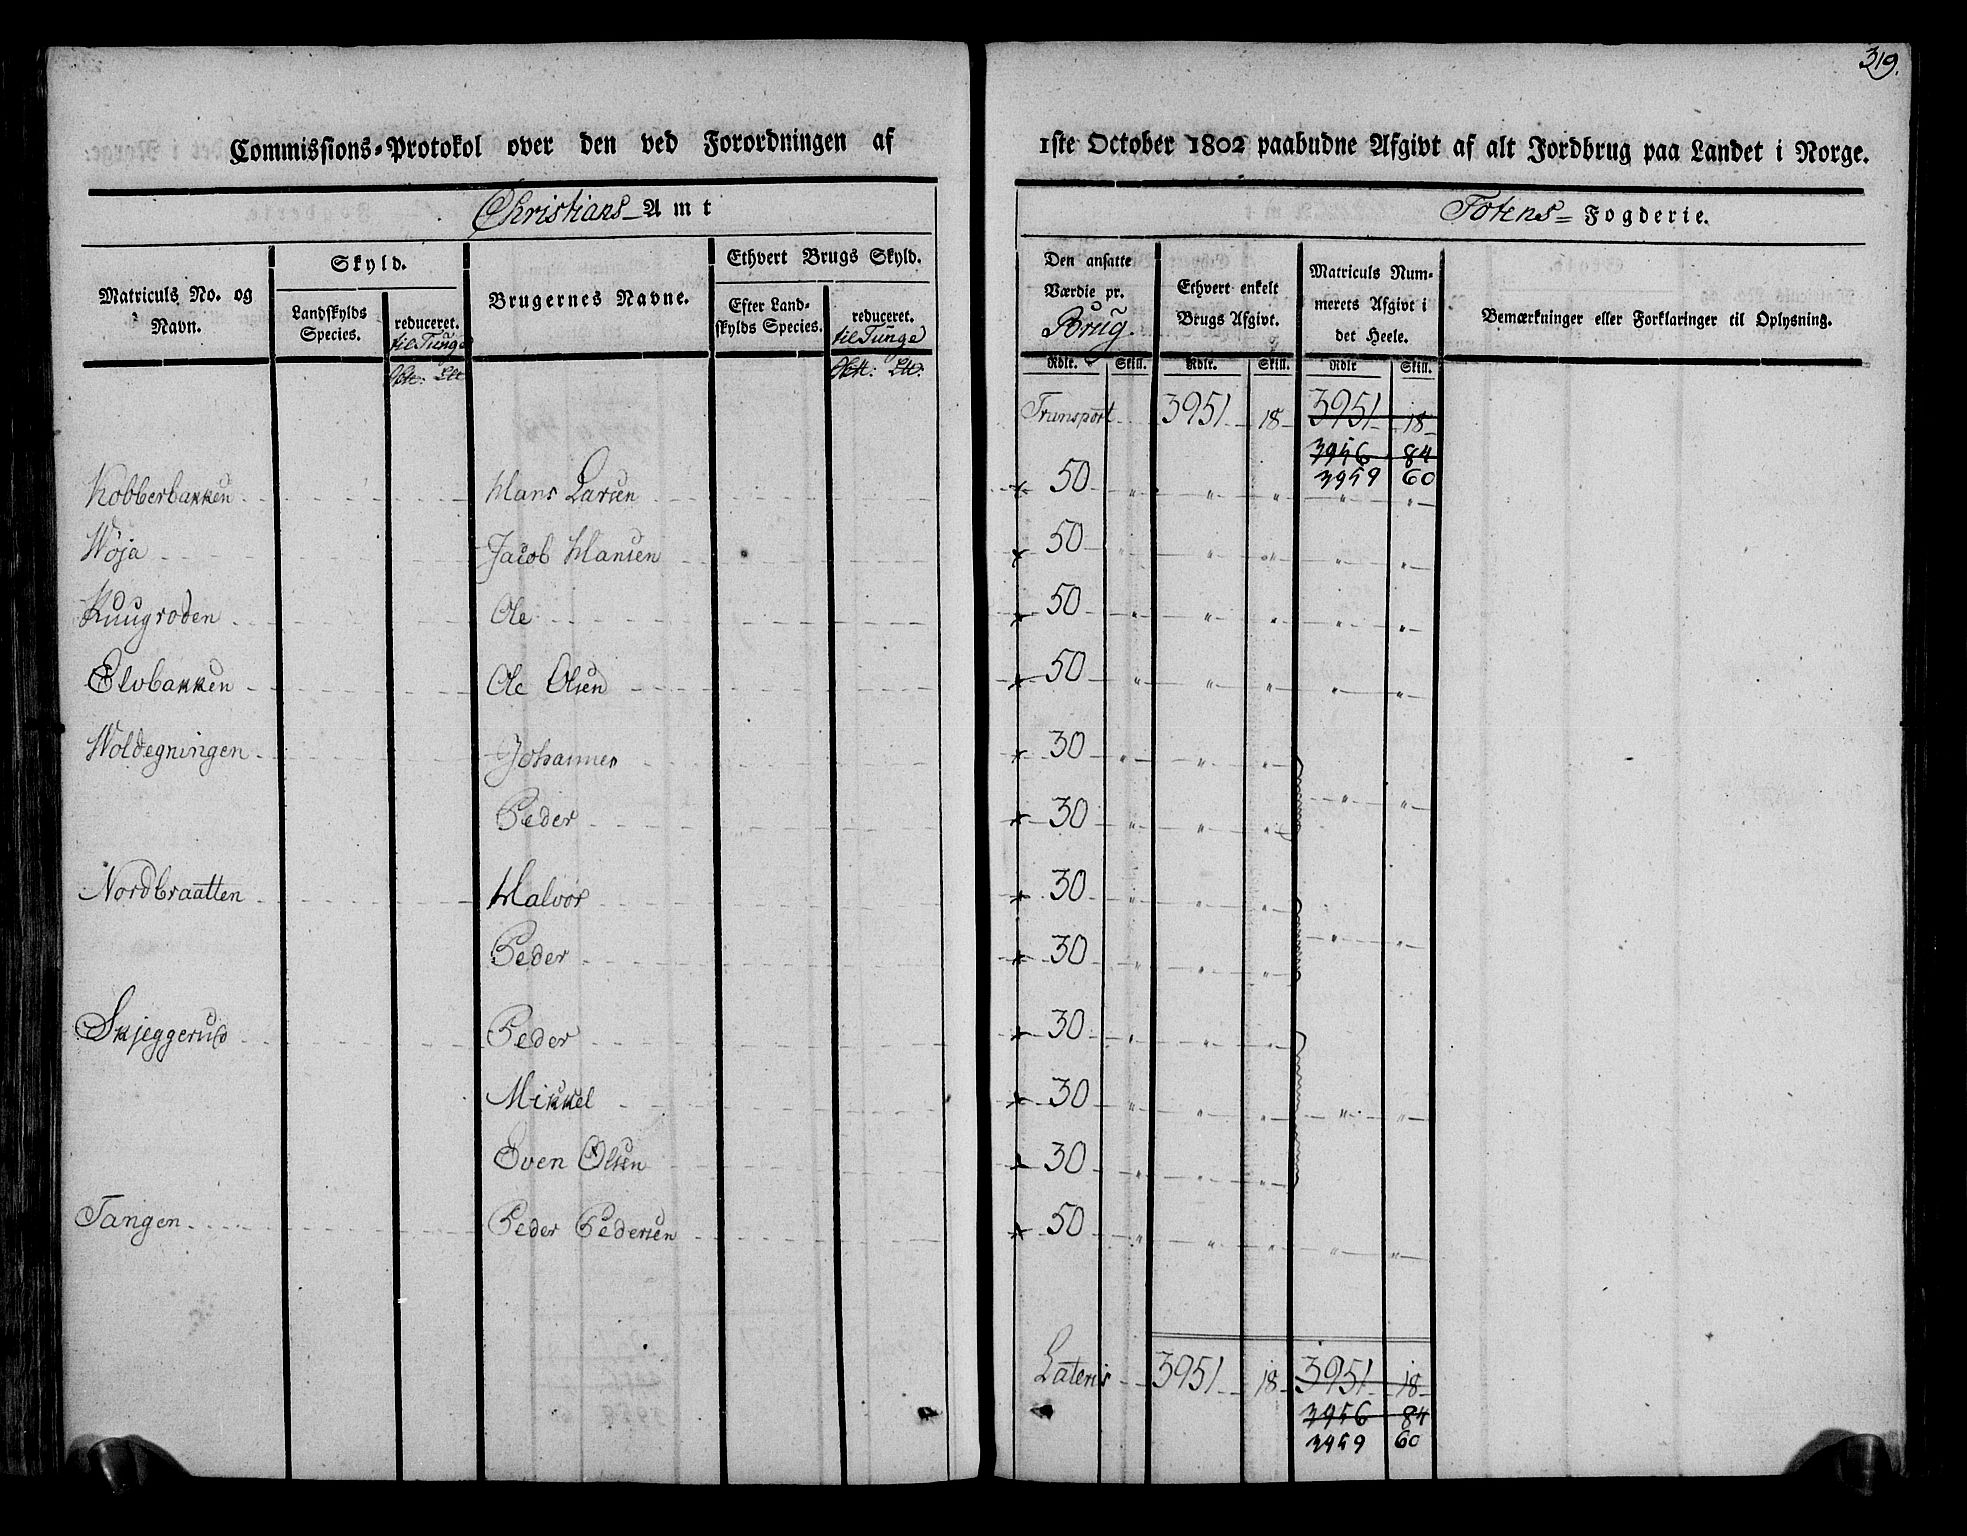 319.
Commissions-Protokol over den ved Forordningen af 1ste October 1802 paabudne Afgivt af alt Jordbrug paa Landet i Norge.
Christians Amt
Totens Fogderie.
Matriculs No. og Navn.
Skyld.
Landskylds Species.
reduceret. til Tunge
Brugernes Navne.
Ethvert Brugs Skyld.
Efter Landskylds Species.
reduceret. til Tunge
Den ansatte Værdie pr. Brug.
Ethvert enkelt Brugs Afgivt.
Matriculs Nummerets Afgivt i det Heele.
Bemærkninger eller Forklaringer til Oplysning.
Rdlr. Skill. Rdlr. Skill. Rdlr Skill.
Transport 3951 18 3951 18
3956 84
3959 60
Kobberbakken Hans Larsen 50 " " " " "
Woja Jacob Hansen 50 " " " " "
Ruugroden Ole 50 " " " " "
Elvbakken Ole Olsen 50 " " " " "
Woldegningen Johannes 30 " " "
Peder 30 " " " " "
Nordbraatten Halvor 30 " " "
Peder 30 " " " " "
Skjeggerud Peder 30 " " "
Mikkel 30 " " " " "
Even Olsen 30 " " "
Tangen Peder Pedersen 50 " " " " "
Lateris 3951 18 3951 18
3956 84
3959 60